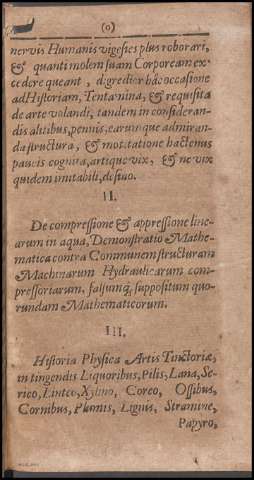 (o)
nervis Humanis vigesies plus roborari,
& quanti molem suam Corpoream ex-
cedere queant, digredior hâc occasione
ad Historiam, Tentamina, & requisita
de arte volandi, tandem in consideran-
dis alitibus, pennis, earumque admiran-
da structura, & motitatione hactenus
paucis cognita, artique vix, & ne vix
quidem imitabili, desino.
II.
De compressione & appressione line-
arum in aqua, Demonstratio Mathe-
matica contra Communem structuram
Machinarum Hydraulicarum com-
pressoriarum, falsumq; suppositum quo-
rundam Mathematicorum.
III.
Historia Physica Artis Tinctoriæ,
in tingendis Liquoribus, Pilis, Lana, Se-
rico, Linteo, Xylino, Coreo, Ossibus,
Cornibus, Plumis, Lignis, Stramine,
Papyro,